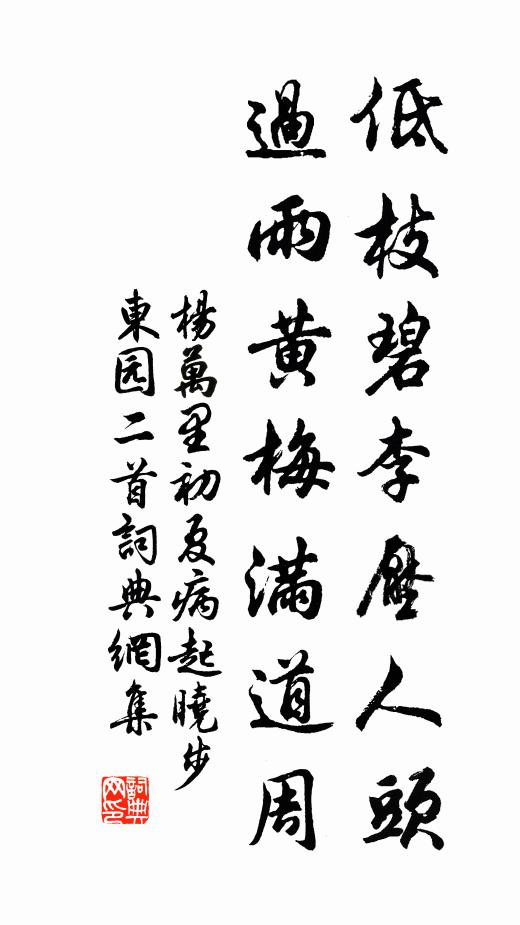 低枝碧李壓人頭
過雨黄梅滿道周
楊萬里初夏病起曉步
東园二首詞典網集
詞典
网印